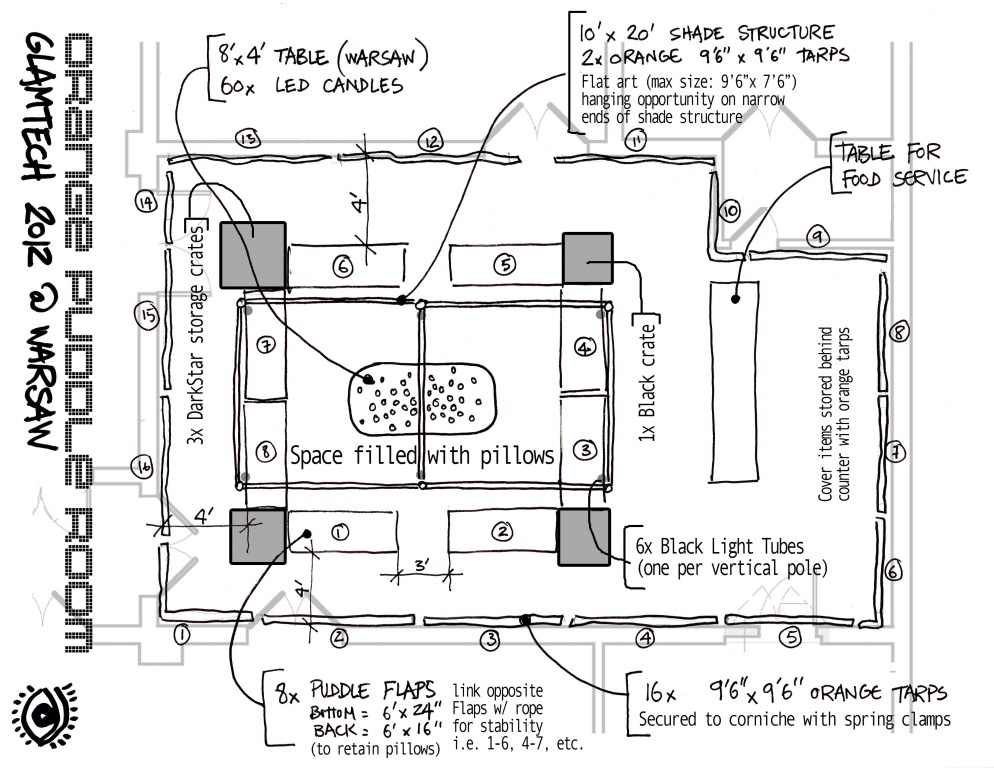 ORANGE PUDDLE ROOM
GLAMTECH 2012 @ WARSAW
8'x4' TABLE (WARSAW)
60x LED CANDLES
10' x 20' SHADE STRUCTURE
2x ORANGE 9'6" x 9'6" TARPS
Flat art (max size: 9'6"x 7'6")
hanging opportunity on narrow
ends of shade structure
TABLE FOR
FOOD SERVICE
13
12
11
14
10
9
4'
3x DarkStar storage crates
6
5
15
7
4
1x Black crate
8
Cover items stored behind
counter with orange tarps
8
Space filled with pillows
3
7
16
4'
1
2
3'
4'
6x Black Light Tubes
(one per vertical pole)
6
1
2
3
4
5
8x PUDDLE FLAPS
BOTTOM = 6' x 24"
BACK = 6' x 16"
(to retain pillows)
link opposite
Flaps w/ rope
for stability
i.e. 1-6, 4-7, etc.
16x 9'6" x 9'6" ORANGE TARPS
Secured to corniche with spring clamps